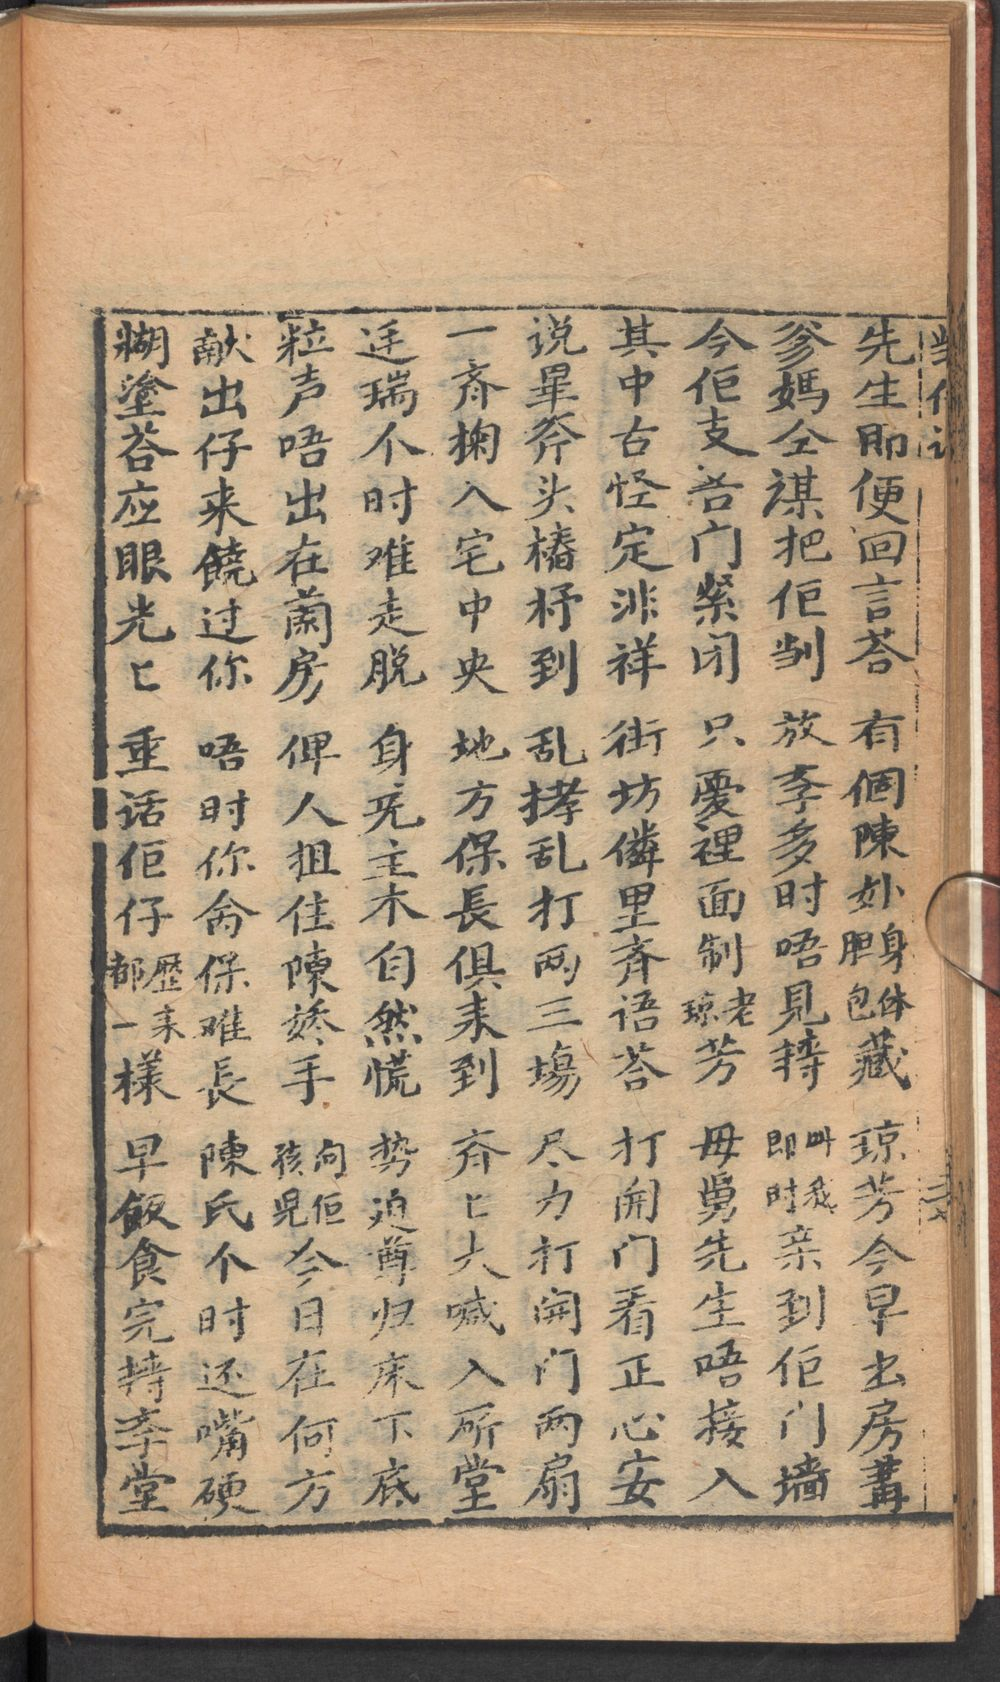 先生即便回言荅 有個陳妙身体胆包藏 琼芳今早出房書
爹媽仝谋把佢制 放李多时唔見轉 叫我即时亲到佢门墙
今佢支吾门紧闭 只憂裡面制老琼芳 母舅先生唔接入
其中古怪定非祥 街坊僯里斉语荅 打開门看正心安
说畢斧头樁杼到 乱拷乱打两三場 尽力打開门两扇
一斉掬入宅中央 地方保長俱来到 斉〻大喊入所堂
廷瑞个时难走脱 身旡主木自然慌 势迫尊归床下底
粒声唔出在蘭房 俾人扭住陳娇手 向佢孩児今日在何方
献出仔来饒过你 唔时你命保难長 陳氏个时还嘴硬
糊塗荅应眼光〻 重话佢仔歷来都一樣 早飯食完轉李堂